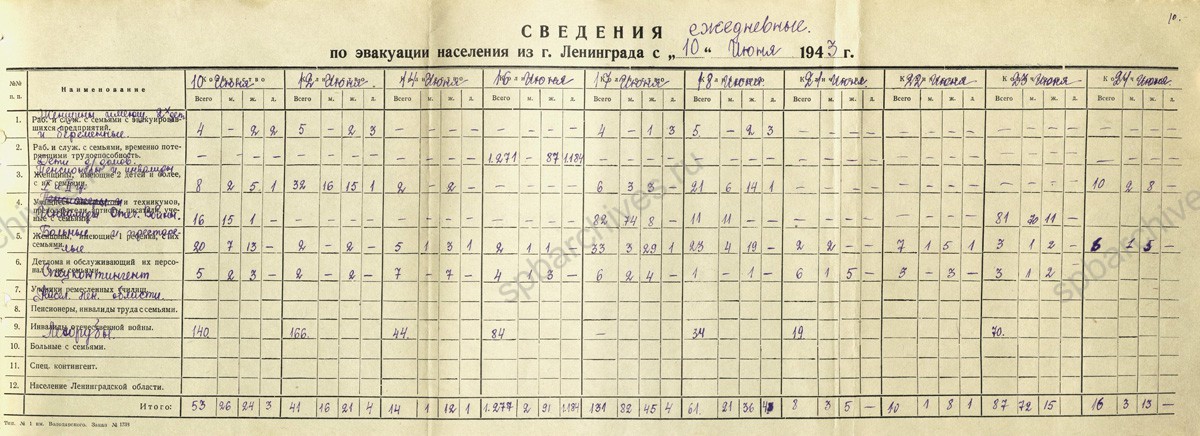 10.
СВЕДЕНИЯ ежедневные.
по эвакуации населения из г. Ленинграда с „10“ Июня 1943 г.
№№ п. п. Наименование
10 Июня 12 Июня 14 Июня 16 Июня 17 Июня 18 Июня 21 Июня 22 Июня 23 Июня 24 Июня
Количество
Всего м. ж. д. Всего м. ж. д. Всего м. ж. д. Всего м. ж. д. Всего м. ж. д. Всего м. ж. д. Всего м. ж. д. Всего м. ж. д. Всего м. ж. д. Всего м. ж. д.
Женщины имеющ. 2х дет.
1. Раб. и служ. с семьями с эвакуировав-
шихся предприятий.
и беременные.
4 – 2 2 5 – 2 3 4 – 1 3 5 – 2 3
2. Раб. и служ. с семьями, временно поте-
рявшими трудоспособность.
– – – – – – – – – – – – 1.271 – 87 1.184
Дети
Пенсионеры и инвалиды
3. Женщины, имеющие 2 детей и более,
с их семьями.
8 2 5 1 32 16 15 1 2 – 2 – 6 3 3 21 6 14 1 10 2 8 –
4. и техникумов,
Инвалиды Отеч. Войны
ные с семьями.
16 15 1 – 82 74 8 – 11 11 – – 81 11 –
Больные и престаре-
5. Женщины, имеющие 1 ребенка, с их
семьями.
-лые
20 7 13 – 2 – 2 – 5 1 3 1 2 1 1 33 3 29 1 23 4 19 – 2 2 – – 7 1 5 1 3 1 2 – 6 1 5 –
6. Детдома и обслуживающий их персо-
нал с их семьями.
Спецконтингент
5 2 3 – 2 – 2 – 7 – 7 – 4 – 3 – 6 2 4 – 1 – 1 – 6 1 5 – 3 – 3 – 3 1 2
7. Ученики ремесленных училищ.
Насел. Лен. области.
8. Пенсионеры, инвалиды труда с семьями.
9. Инвалиды отечественной войны.
Лесорубы.
140. 166. 44. 84 – 34 19. 70.
10. Больные с семьями.
11. Спец. контингент.
12. Население Ленинградской области.
Итого: 53 26 24 3 41 16 21 4 14 1 12 1 1.277 2 91 1.184 131 82 45 4 61. 21 36 4 8 3 5 – 10 1 8 1 87 72 15 16 3 13 –
Тип. № 1 им. Володарского. Заказ № 1799
spbarchives.ru
spbarchives.ru